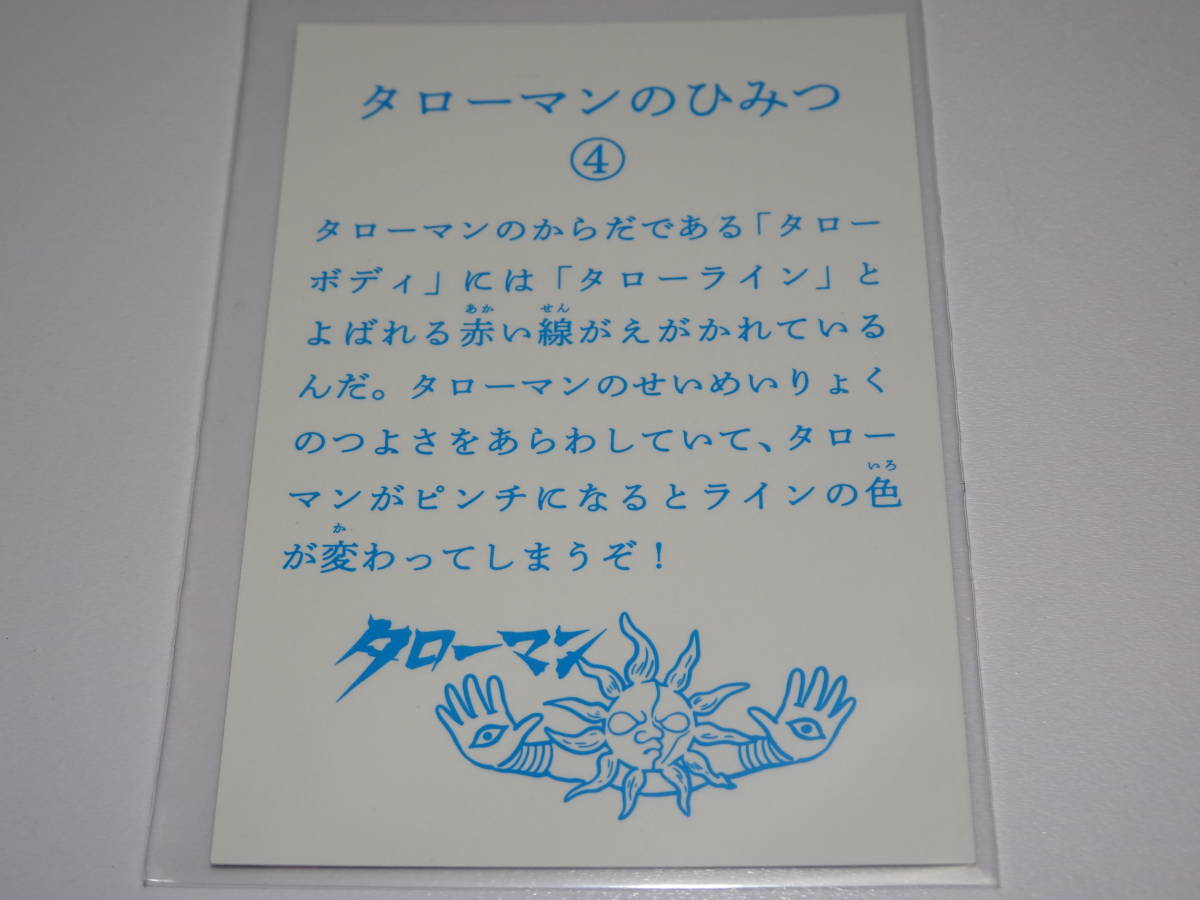 タローマンのひみつ
④
タローマンのからだである「タロー
ボディ」には「タローライン」と
よばれる赤い線がえがかれている
んだ。タローマンのせいめいりょく
のつよさをあらわしていて、タロー
マンがピンチになるとラインの色
が変わってしまうぞ！
タローマン